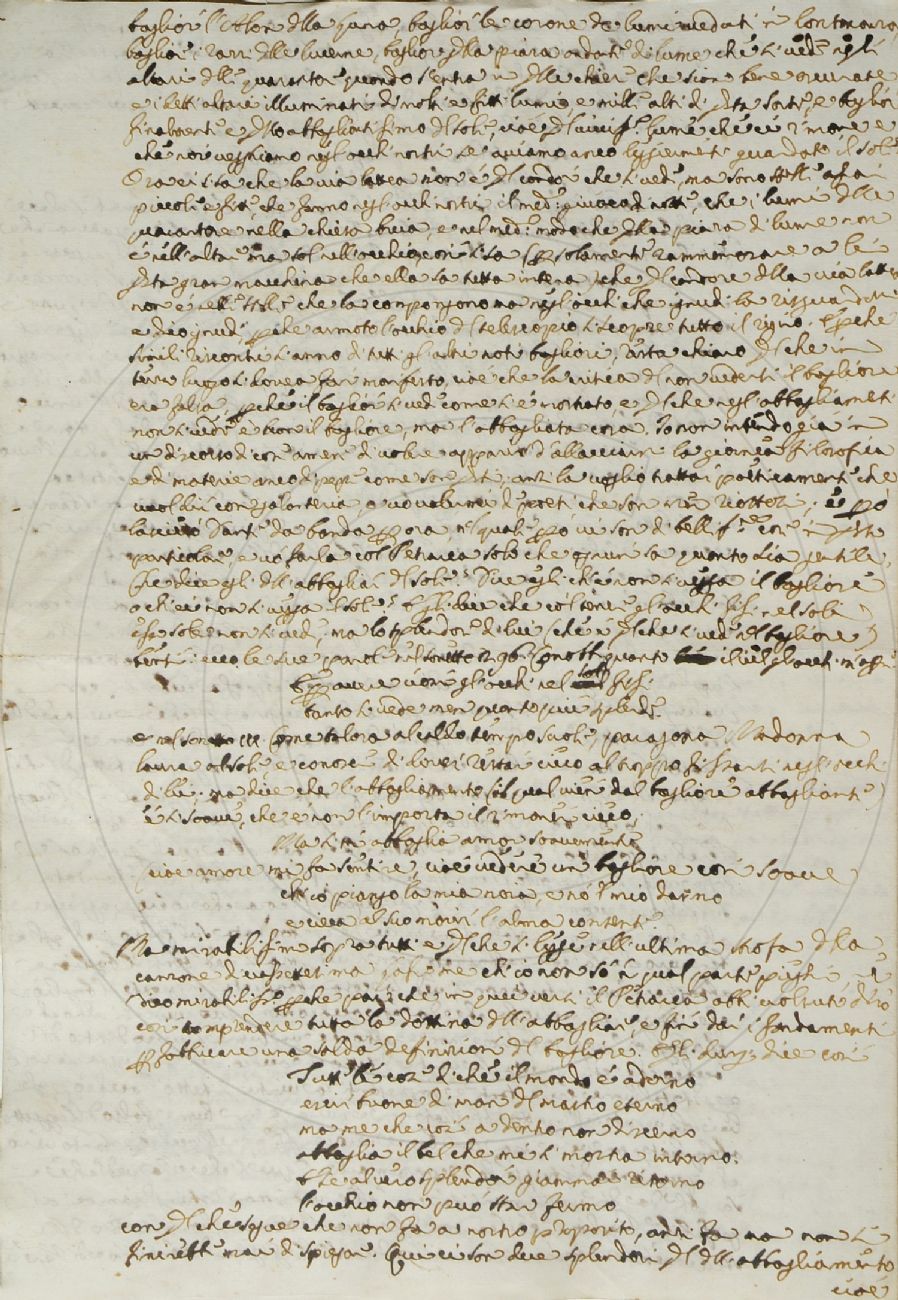 bagliori l'Alon della luna, bagliori le corone de lumi veduti in lontananza
bagliori i raggi delle lucerne, bagliore quella piana ondata di lume che si vede negli
altari delle quarantore quando s'entra in quelle chiese che sian bene oscurate
e i belli altari illuminati di molti e fitti lumi, e mille altri di questa sorte, e bagliore
finalmente è quello abbagliantissimo del sole, cioè quel vivissimo lume che ci rimane e
che noi veggiamo negl'occhi nostri se aviamo anco leggiermente guardato il sole.
Ora ei si sa che la via lattea non è quel candor che si vede, ma sono stelle assai
piccole e fitte che fanno negl'occhi nostri il medesimo giuoco di notte, che i lumi delle
quarantore nella chiesa buia, e nel medesimo modo che quella piana di lume non
è nell'altare ma sol nell'occhio, così si sa
questa gran macchina che ella sa tutta intera, che quel candore della via lattea
non è nelle stelle che la compongono ma negl'occhi che ignudi la risguardano
e dico ignudi, perche armato l'occhio del telescopio si scopre tutto il giuoco. E perche
simili riscontri s'anno di tutti gl'altri noti bagliori, resta chiaro quel che in
terzo luogo si doveva far manifesto, cioè che la critica del non vedersi il bagliore
era falsa, perchè il bagliore si vede come s'è mostrato, e quel che negl'abbagliamenti
non si vede è non il bagliore, ma l'abbagliata cosa. Io non intendo già in
un discorso di cose amene di volere apparir d'allacciarmi la giornea filosofica
e di materie anco di peso come son queste, anzi la voglio trattar poeticamente che
vuol dir con galanteria, e vo valermi de poeti che son miei dottori, e però
lasciato Dante da banda per ora nel quale però vi son di bellissime cose in questo
particolare, e vo' farla col Petrarca solo che ognun sa quanto sia gentile.
Che dice egli dell'abbagliar del sole? Dice egli ch'e non si vegga il bagliore
o ch'ei non si vegga il sole? Egli dice che col tener gl'occhi fissi nel sole
esso sole non si vede, ma lo splendor di lui (che è quel che si vede nel bagliore)
bensì: ecco le sue parole nel sonetto
E per avere uom gl'occhi nel sol fissi
tanto si vede men quanto più splende.
e nel sonetto III Come talora al caldo tempo suole, paragona Madonna
Laura al sole e conosce di dover restar cieco al troppo fissarsi negl'occhi
di lei, ma dice che l'abbagliamento (il qual vien dal bagliore abbagliante)
è sì soave, che e' non l'importa il rimaner cieco,
Ma sì m'abbaglia amor soavemente
cioè amore mi fa sentire, cioè vedere un bagliore così soave
ch'io piango la mia noia, e nò 'l mio danno
e cieca al suo morir l'alma consente.
Ma mirabilissimo sopra tutti è quel che si legge nell'ultima strofa della
canzone
Dico mirabilissimo perche pare che in quei versi il Petrarca abbi voluto dirò
così comprendere tutta la dottrina dell'abbagliare e fin dar i fondamenti
per fabbricare una salda definizione del bagliore. Egli dunque dice così
Tutte le cose di che il mondo è adorno
escir buone di man del mastro eterno
ma me che così a dentro non discerno
abbaglia il bel che mi si mostra intorno.
E s'al vero splendor giammai ritorno
l'occhio non può star fermo
con quel che segue che non fa a nostro proposito, anzi fa ma non si
finirebbe mai di spiegare. Qui ci son due splendori quel dell'abbagliamento
cioè